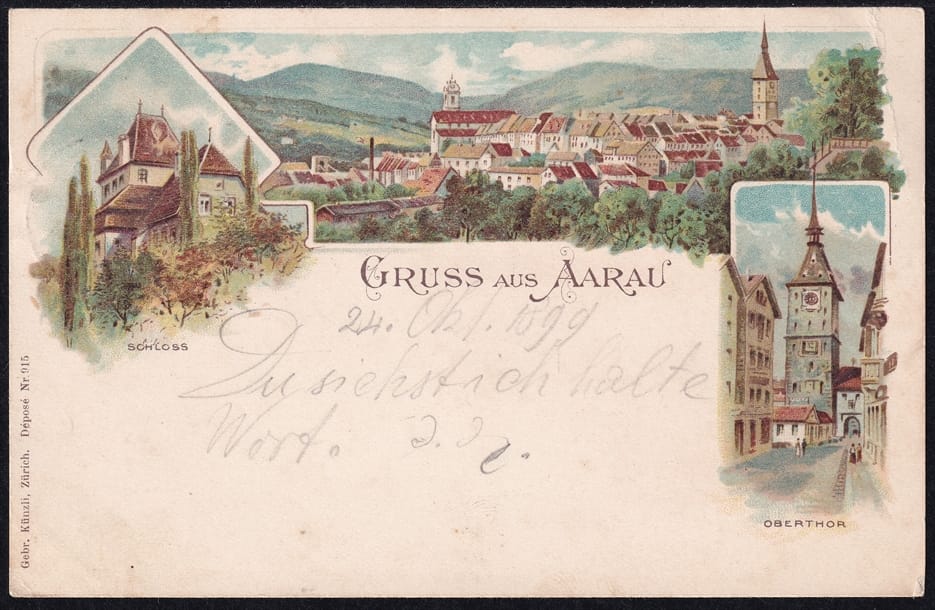 GRUSS AUS AARAU
24. Okt. 1899
Du siehst ich halte
Wort.
SCHLOSS
OBERTHOR
Gebr. Künzli, Zürich. Déposé Nr. 915